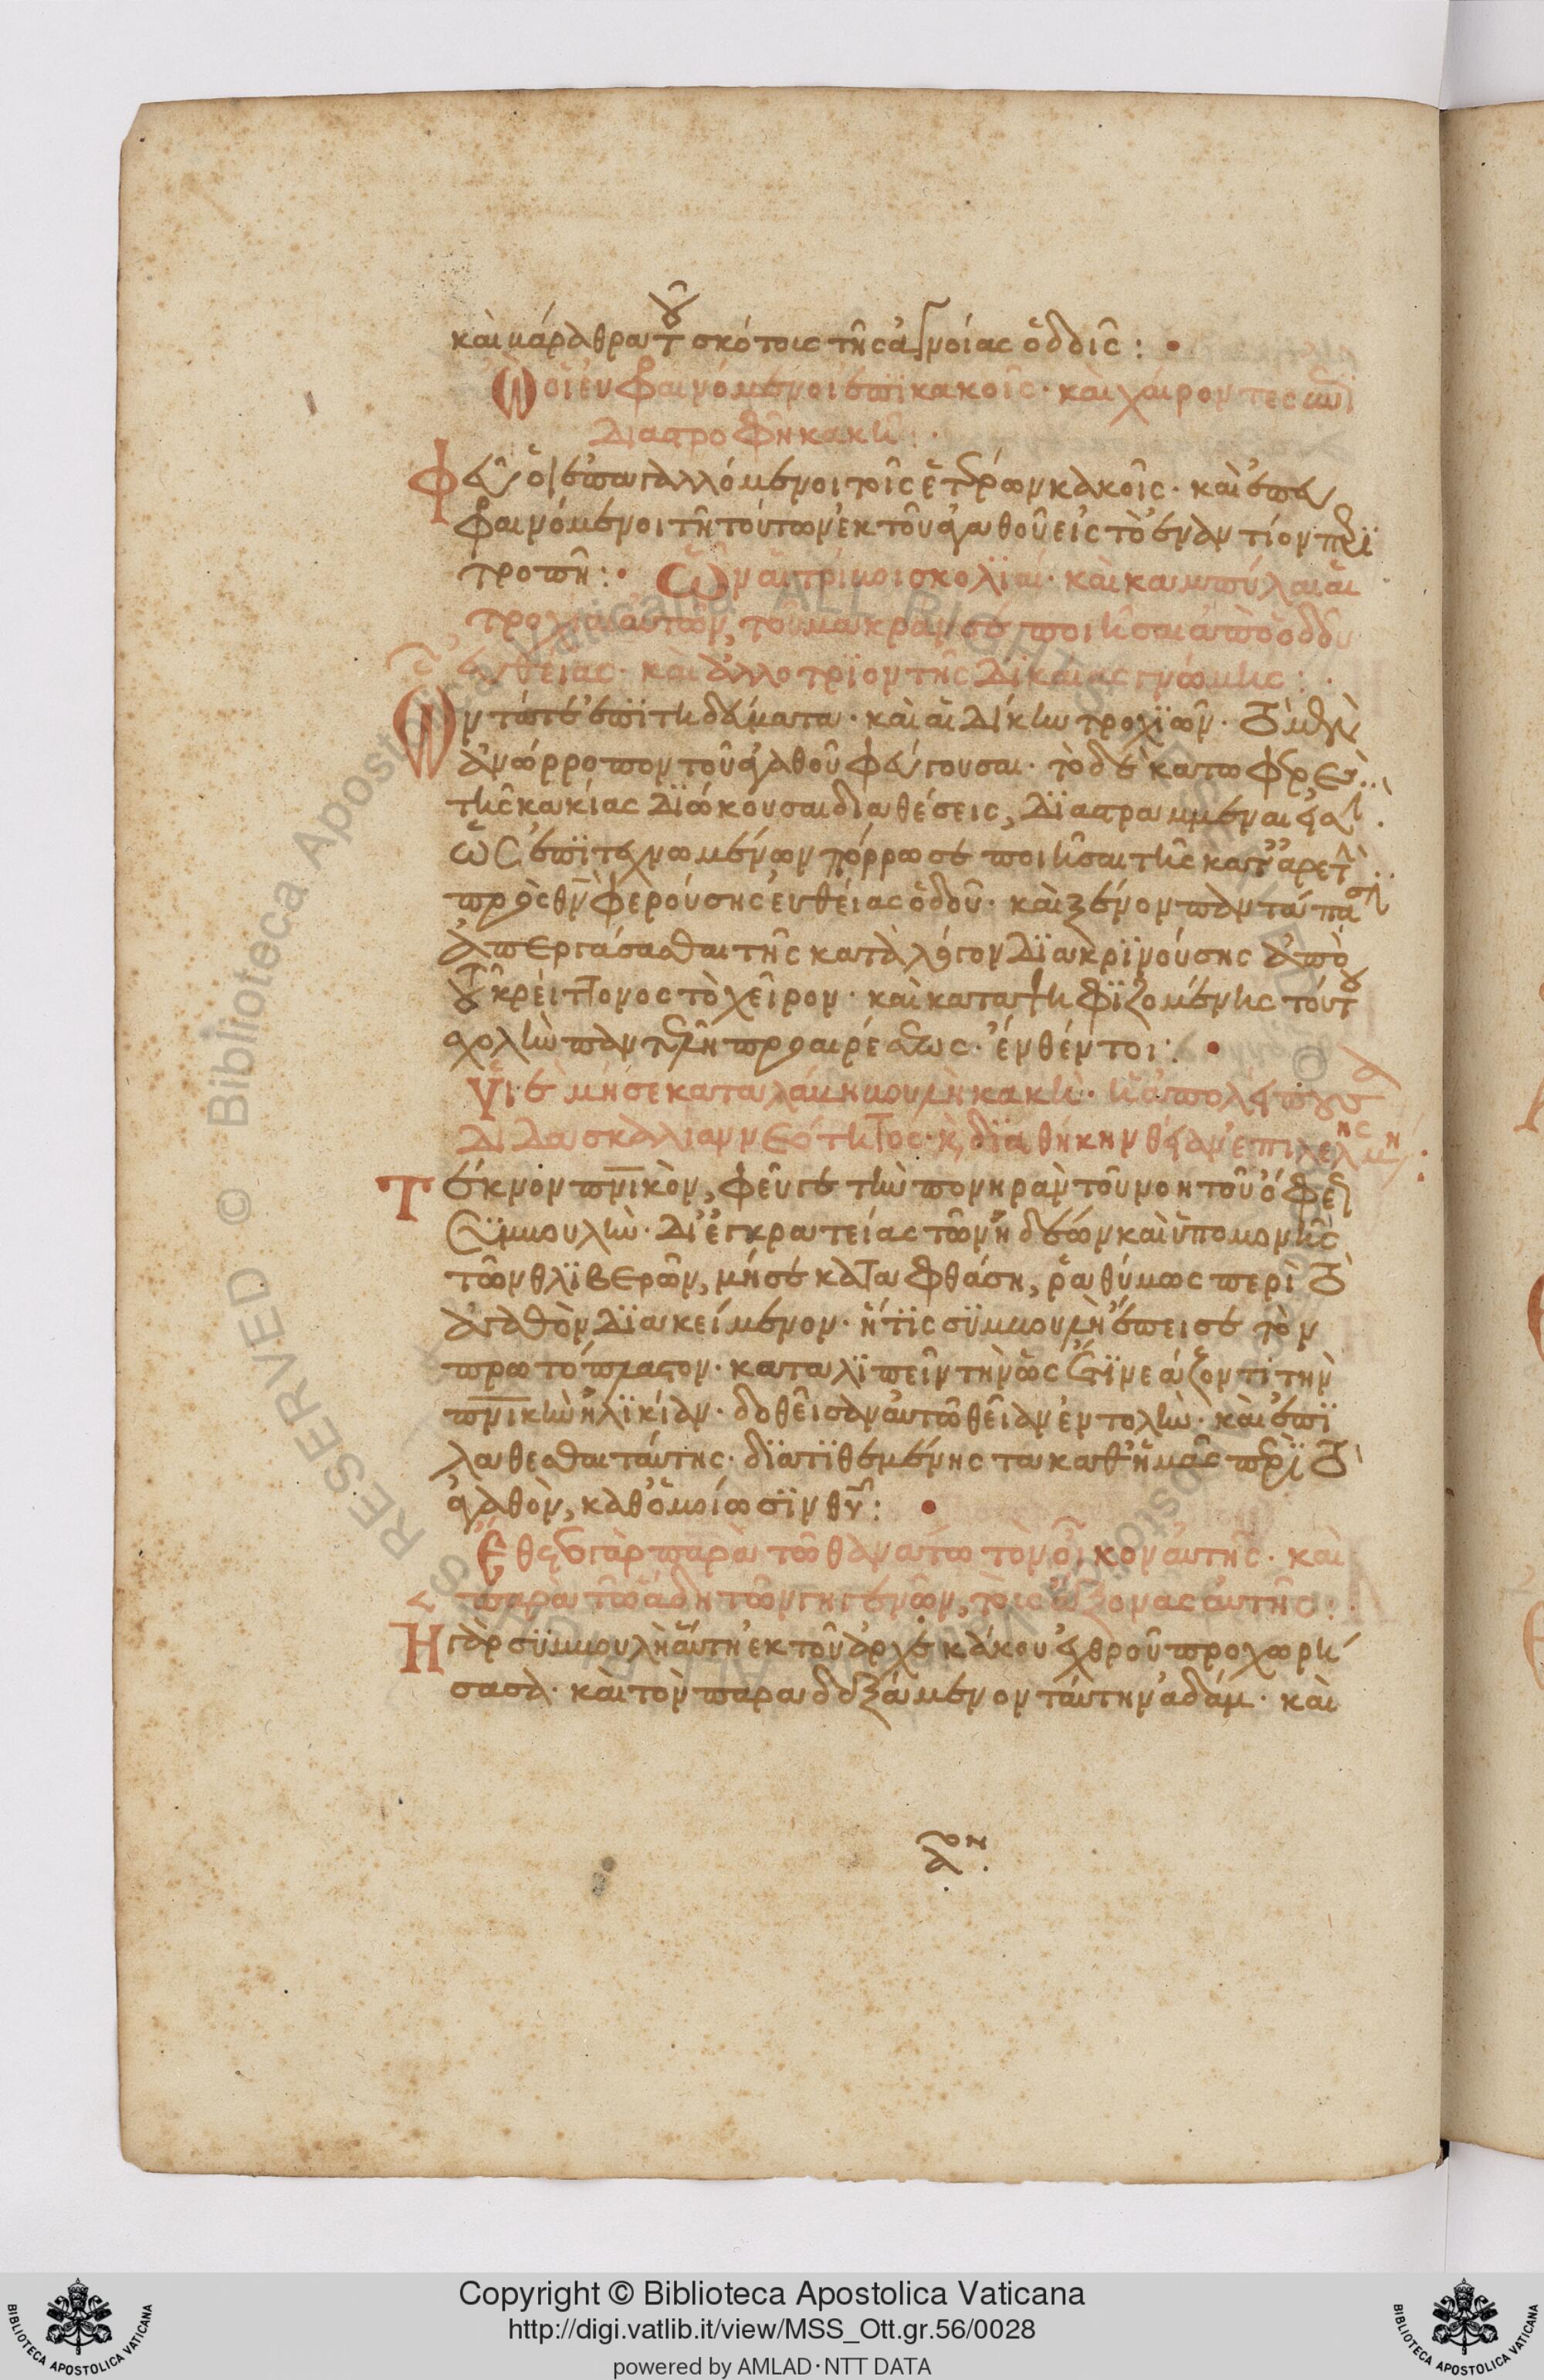 καὶ βάραθρα τοῦ σκότους τῆς ἀγνοίας ὁδοῖς:
Ὦ οἱ εὐφραινόμενοι ἐπὶ κακοῖς· καὶ χαίροντες ἐπὶ
διαστροφῇ κακῇ:
Φεῦ οἱ ἐπαγαλλόμενοι τοῖς ἑτέρων κακοῖς· καὶ ἐπευ
φραινόμενοι τῇ τούτων ἐκ τοῦ ἀγαθοῦ εἰς τὸ ἐναντίον περι
τροπῇ: Ὧν αἱ τρίβοι σκολιαί· καὶ καμπύλαι αἱ
τροχιαὶ αὐτῶν, τοῦ μακράν σε ποιῆσαι ἀπὸ ὁδοῦ
εὐθείας· καὶ ἀλλότριον τῆς δικαίας γνώμης:
Ὧν τά τε ἐπιτηδεύματα· καὶ αἱ δίκην τροχιῶν· τὸ μὲν
ἀνώρροπον τοῦ ἀγαθοῦ φεύγουσαι· τὸ δὲ κατωφερὲς
τῆς κακίας διώκουσαι διαθέσεις, διεστραμμέναι εἰσί.
ὡς ἐπιτεχνωμένων πόρρω σε ποιῆσαι τῆς κατ' ἀρετὴν
πρὸς θν φερούσης εὐθείας ὁδοῦ· καὶ ξένον παντάπασιν
ἀπεργάσασθαι τῆς κατὰ λόγον διακρινούσης ἀπὸ
τοῦ κρείττονος τὸ χεῖρον· καὶ καταψηφιζομένης τούτου
χολὴν παντελῆ προαιρέσεως· ἐνθέντοι:
Υἱὲ μή σε καταλάβῃ βουλὴ κακή· ἡ ἀπολείπουσα
διδασκαλίαν νεότητος· καὶ διαθήκην θείαν ἐπιλελησμένη:
Τέκνον πνικὸν, φεῦγε τὴν πονηρὰν τοῦ νοητοῦ ὄφεως
συμβουλήν· δι' ἐγκρατείας τῶν ἡδέων καὶ ὑπομονῆς
τῶν θλιβερῶν, μή σε καταφθάσῃ, ῥᾳθύμως περὶ τὸ
ἀγαθὸν διακείμενον· ἥτις συμβουλὴ ἔπεισε τὸν
πρωτόπλαστον· καταλιπεῖν τὴν ὡς ἔτι νεάζοντι τὴν
πνικὴν ἡλικίαν· δοθεῖσαν αὐτῷ θείαν ἐντολήν· καὶ ἐπι
λαθέσθαι ταύτης· διατιθεμένης τὰ καθ' ἡμᾶς περὶ τὸ
ἀγαθὸν, καθ' ὁμοίωσιν θυ:
Ἔθετο γὰρ παρὰ τῷ θανάτῳ τὸν οἶκον αὐτῆς· καὶ
παρὰ τῷ ᾅδῃ τῶν γηγενῶν, τοὺς ἄξονας αὐτῆς:
Ἡ γὰρ συμβουλὴ αὕτη ἐκ τοῦ ἀρχεκάκου ἐχθροῦ προχωρή
σασα· καὶ τὸν παραδεξάμενον ταύτην ἀδάμ· καὶ
Copyright © Biblioteca Apostolica Vaticana
http://digi.vatlib.it/view/MSS_Ott.gr.56/0028
powered by AMLAD·NTT DATA
BIBLIOTECA APOSTOLICA VATICANA
BIBLIOTECA APOSTOLICA VATICANA